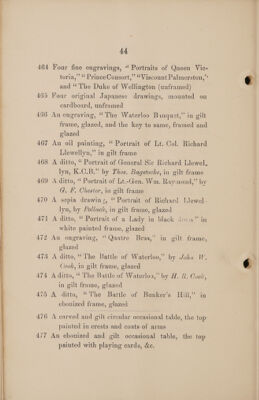 44
464 Four fine engravings, "Portraits of Queen Vic-
toria," "Prince Consort," "Viscount Palmerston,"
and "The Duke of Wellington (unframed)
465 Four original Japanese drawings, mounted on
cardboard, unframed
466 An engraving, "The Waterloo Banquet," in gilt
frame, glazed, and the key to same, framed and
glazed
467 An oil painting, "Portrait of Lt. Col. Richard
Llewellyn," in gilt frame
468 A ditto, "Portrait of General Sir Richard Llewel-
lyn, K.C.B." by Thos. Bagstocke, in gilt frame
469 A ditto, "Portrait of Lt.-Gen. Wm. Raymond," by
G. F. Chester, in gilt frame
470 A sepia drawing, "Portrait of Richard Llewel-
lyn, by Pollock, in gilt frame, glazed
471 A ditto, "Portrait of a Lady in black dress" in
white painted frame, glazed
472 An engraving, "Quatre Bras," in gilt frame,
glazed
473 A ditto, "The Battle of Waterloo," by John W.
Cook, in gilt frame, glazed
474 A ditto, "The Battle of Waterloo," by H. R. Cook,
in gilt frame, glazed
475 A ditto, "The Battle of Bunker's Hill," in
ebonized frame, glazed
476 A carved and gilt circular occasional table, the top
painted in crests and coats of arms
477 An ebonized and gilt occasional table, the top
painted with playing cards, &c.